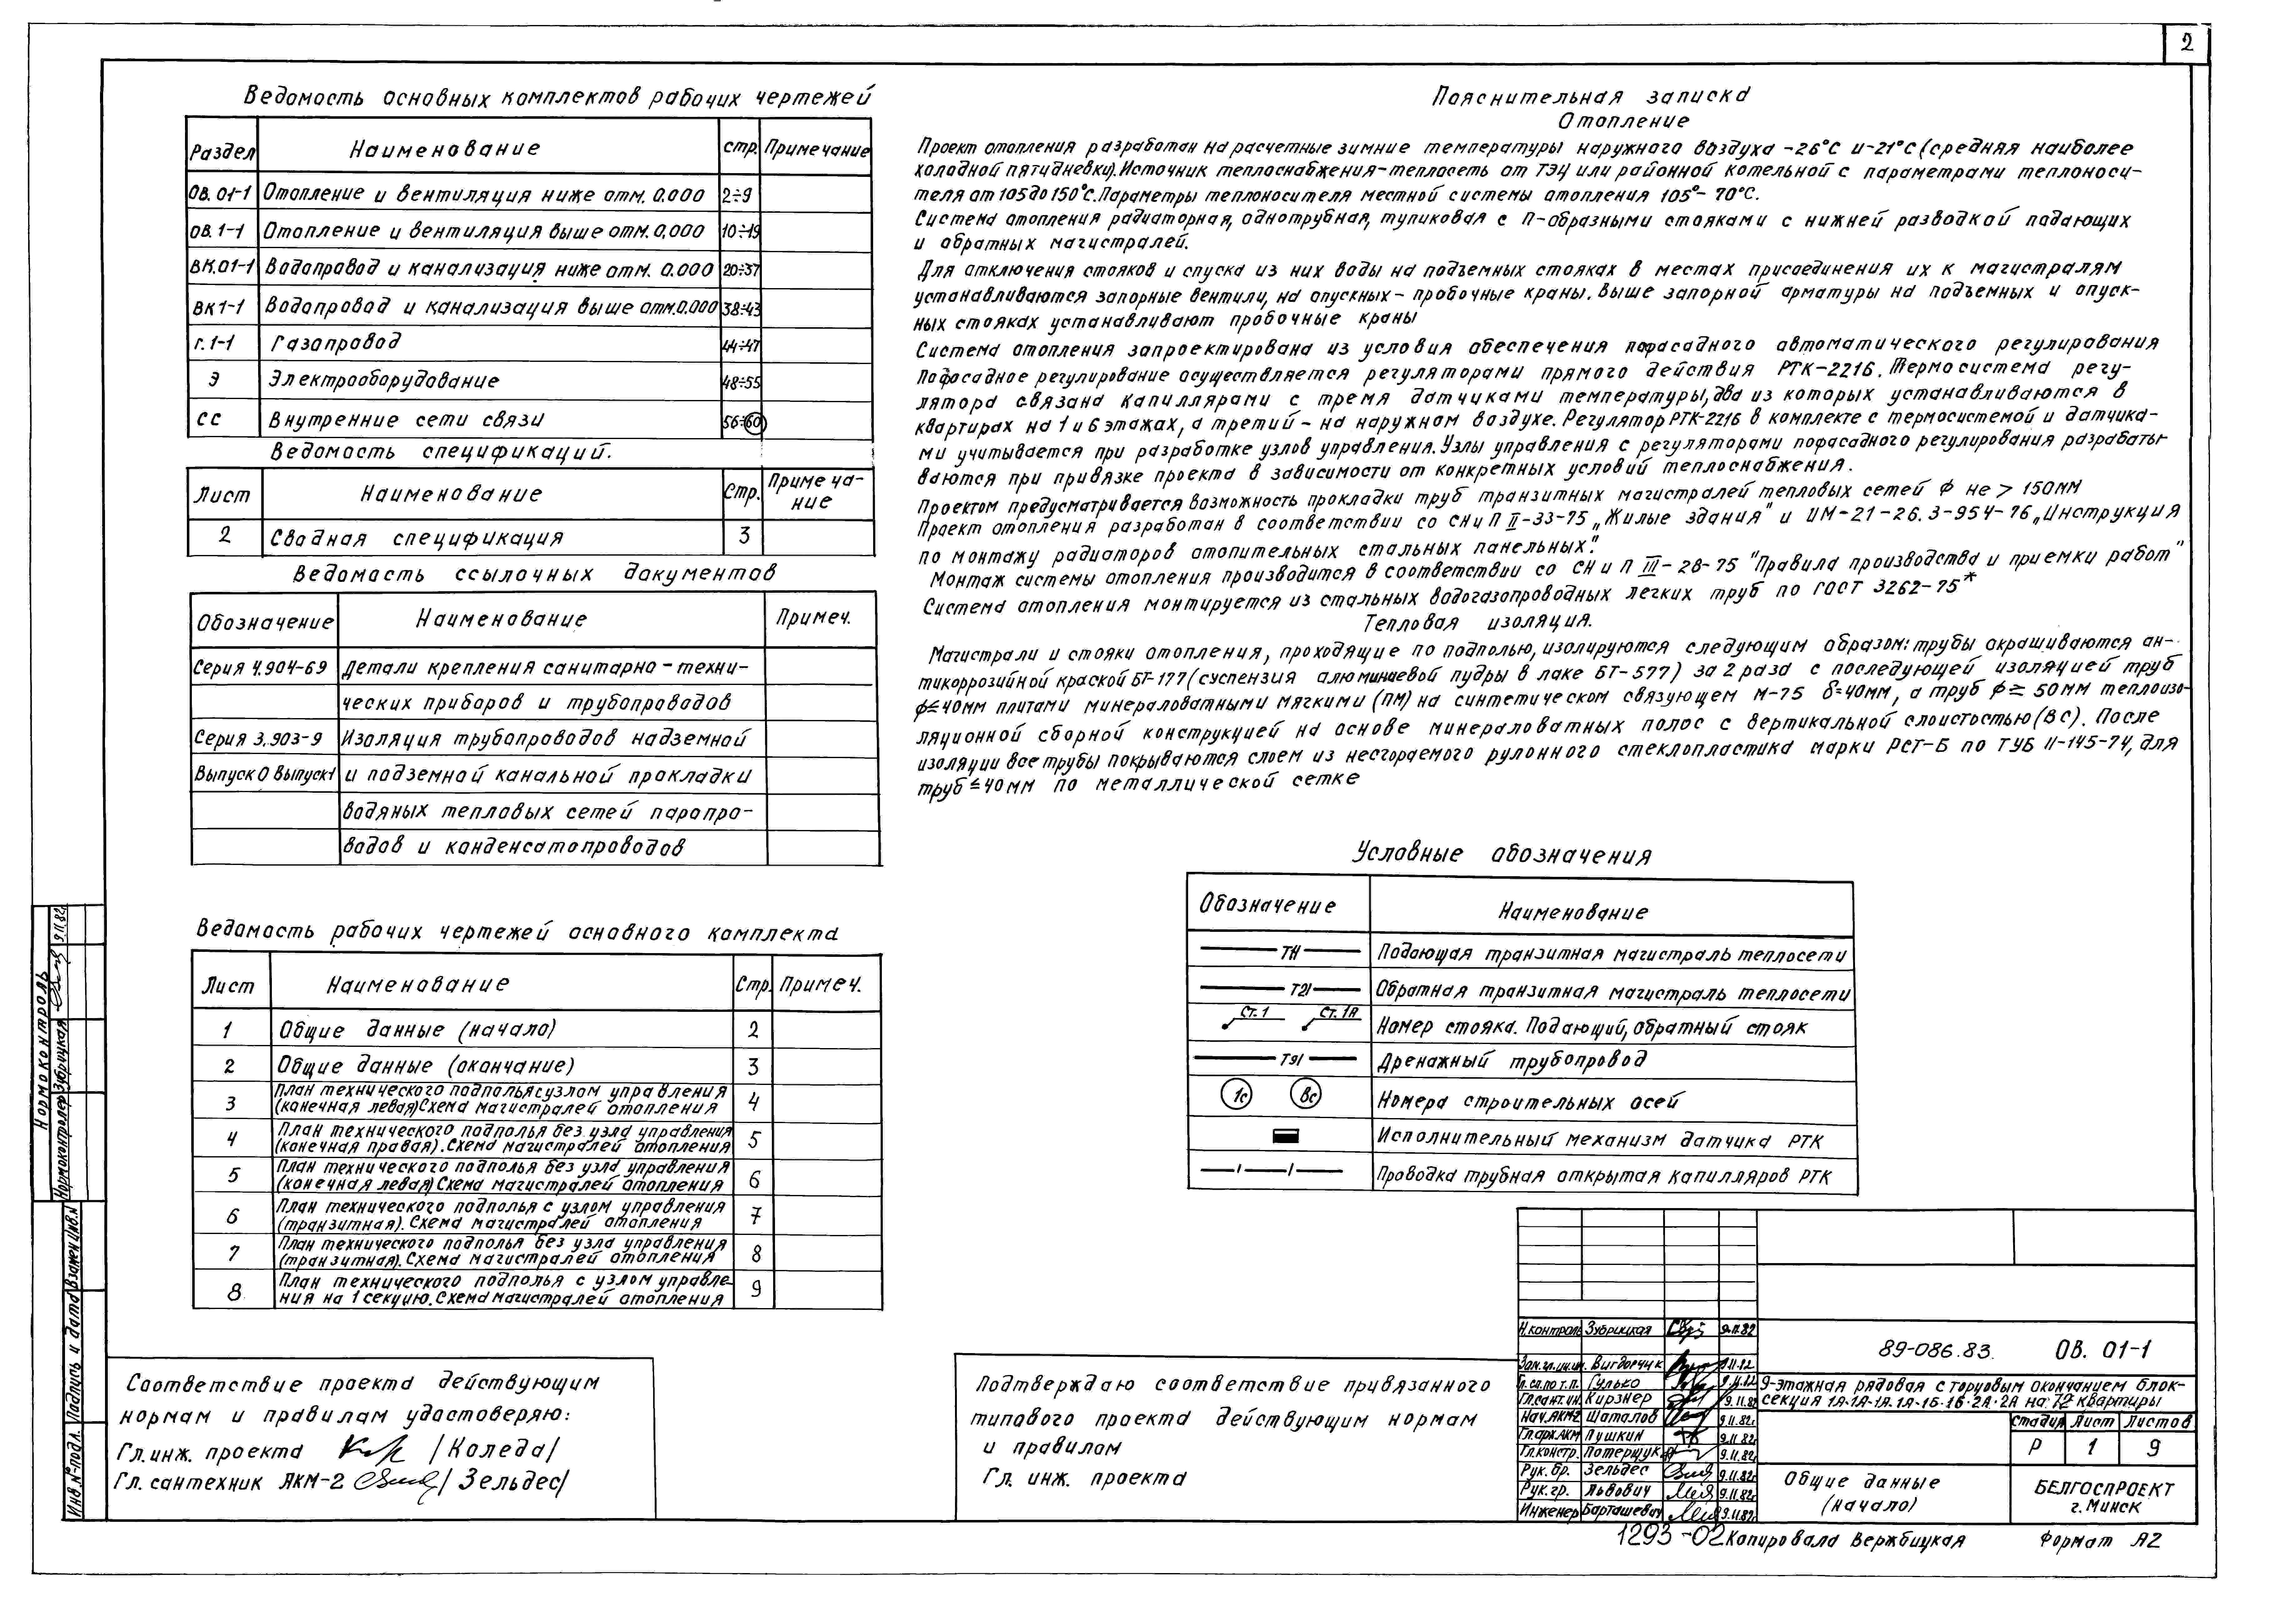 2
Ведомость основных комплектов рабочих чертежей
Раздел Наименование стр. Примечание
ОВ.01-1 Отопление и вентиляция ниже отм. 0.000 2÷9
ОВ.1-1 Отопление и вентиляция выше отм. 0.000 10÷19
ВК.01-1 Водопровод и канализация ниже отм. 0.000 20÷37
ВК1-1 Водопровод и канализация выше отм.0.000 38÷43
Г.1-1 Газопровод 44÷47
Э Электрооборудование 48÷55
СС Внутренние сети связи 56÷60
Ведомость спецификаций.
Лист Наименование Стр. Примеча-
ние
2 Сводная спецификация 3
Ведомость ссылочных документов
Обозначение Наименование Примеч.
Серия 4.904-69 Детали крепления санитарно-техни-
ческих приборов и трубопроводов
Серия 3.903-9 Изоляция трубопроводов надземной
Выпуск 0 Выпуск1 и подземной канальной прокладки
водяных тепловых сетей паропро-
водов и конденсатопроводов
Ведомость рабочих чертежей основного комплекта
Лист Наименование Стр. Примеч.
1 Общие данные (начало) 2
2 Общие данные (окончание) 3
3 План технического подполья с узлом управления
(конечная левая) Схема магистралей отопления 4
4 План технического подполья без узла управления
(конечная правая). Схема магистралей отопления 5
5 План технического подполья без узла управления
(конечная левая) Схема магистралей отопления 6
6 План технического подполья с узлом управления
(транзитная). Схема магистралей отопления 7
7 План технического подполья без узла управления
(транзитная). Схема магистралей отопления 8
8 План технического подполья с узлом управле-
ния на 1 секцию. Схема магистралей отопления 9
Соответствие проекта действующим
нормам и правилам удостоверяю:
Гл. инж. проекта /Коледа/
Гл. сантехник АКМ-2 /Зельдес/
Пояснительная записка
Отопление
Проект отопления разработан на расчетные зимние температуры наружного воздуха -26°С и -21°С (средняя наиболее
холодной пятидневки). Источник теплоснабжения-теплосеть от ТЭЦ или районной котельной с параметрами теплоноси-
теля от 105 до 150°С. Параметры теплоносителя местной системы отопления 105°- 70°С.
Система отопления радиаторная, однотрубная, тупиковая с П-образными стояками с нижней разводкой подающих
и обратных магистралей.
Для отключения стояков и спуска из них воды на подъемных стояках в местах присоединения их к магистралям
устанавливаются запорные вентили, на опускных- пробочные краны. Выше запорной арматуры на подъемных и опуск-
ных стояках устанавливают пробочные краны
Система отопления запроектирована из условия обеспечения пофасадного автоматического регулирования
Пофасадное регулирование осуществляется регуляторами прямого действия РТК-2216. Термосистема регу-
лятора связана капиллярами с тремя датчиками температуры, два из которых устанавливаются в
квартирах на 1 и 6 этажах, а третий - на наружном воздухе. Регулятор РТК-2216 в комплекте с термосистемой и датчика-
ми учитывается при разработке узлов управления. Узлы управления с регуляторами пофасадного регулирования разрабаты-
ваются при привязке проекта в зависимости от конкретных условий теплоснабжения.
Проектом предусматривается возможность прокладки труб транзитных магистралей тепловых сетей ф не > 150мм
Проект отопления разработан в соответствии со СНиП II-33-75 „Жилые здания" и ИМ-21-26.3-954-76 „Инструкция
по монтажу радиаторов отопительных стальных панельных".
Монтаж системы отопления производится в соответствии со СНиП III-28-75 "Правила производства и приемки работ"
Система отопления монтируется из стальных водогазопроводных легких труб по ГОСТ 3262-75*
Тепловая изоляция.
Магистрали и стояки отопления, проходящие по подполью, изолируются следующим образом: трубы окрашиваются ан-
тикоррозийной краской БТ-177 (суспензия алюминиевой пудры в лаке БТ-577) за 2 раза с последующей изоляцией труб
ф≤40мм плитами минераловатными мягкими (ПМ) на синтетическом связующем М-75 δ=40мм, а труб ф≥50мм теплоизо-
ляционной сборной конструкцией на основе минераловатных полос с вертикальной слоистостью (ВС). После
изоляции все трубы покрываются слоем из несгораемого рулонного стеклопластика марки РСТ-Б по ТУ6 11-145-74, для
труб ≤40мм по металлической сетке
Условные обозначения
Обозначение Наименование
Т11 Подающая транзитная магистраль теплосети
Т21 Обратная транзитная магистраль теплосети
Ст.1 Ст.1А Номер стояка. Подающий, обратный стояк
Т91 Дренажный трубопровод
1с 8с Номера строительных осей
Исполнительный механизм датчика РТК
Проводка трубная открытая капилляров РТК
Подтверждаю соответствие привязанного
типового проекта действующим нормам
и правилам
Гл. инж. проекта
Н.контроль Зубрицкая 9.11.82
Зам.гл.инж. Вигдорчик 9.11.82
Гл.сп.по т.п. Гулько 9.11.82
Гл.сант.ин. Кирзнер 9.11.82
Нач.АКМ2 Шаталов 9.11.82г
Гл.арх.АКМ Пушкин 9.11.82г
Гл.констр. Потерщук 9.11.82г
Рук.бр. Зельдес 9.11.82г
Рук.гр. Львович 9.11.82г
Инженер Барташевич 9.11.82г
89-086.83. ОВ. 01-1
9-этажная рядовая с торцовым окончанием блок-
секция 1А-1А-1А.1А-1Б-1Б-2А-2А на 72 квартиры
Стадия Лист Листов
Р 1 9
Общие данные
(начало)
БЕЛГОСПРОЕКТ
г. Минск
1293-02 Копировала Вержбицкая Формат А2
Нормоконтроль
Нормоконтролер Зубрицкая 9.11.82г
Инв.№подл. Подпись и дата Взамен инв.№